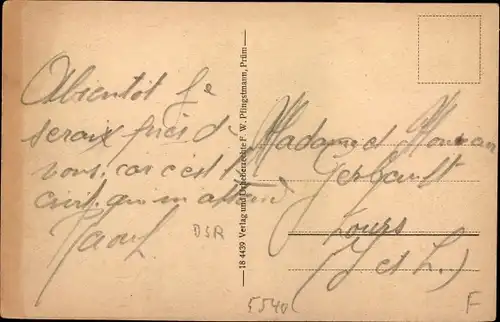 Abientot je
serais près de
vous, car c'est le
civil qui m'attend
Raoul
DSR
18 4439 Verlag und Urheberrechte F. W. Pfingstmann, Prüm
Madame et Monsieur
Gerbault
Tours
(I et L.)
5540
F